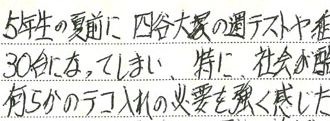 5年生の夏前に 四谷大塚の週テストや
30台になってしまい、特に、社会が
何らかのテコ入れの必要を強く感じた